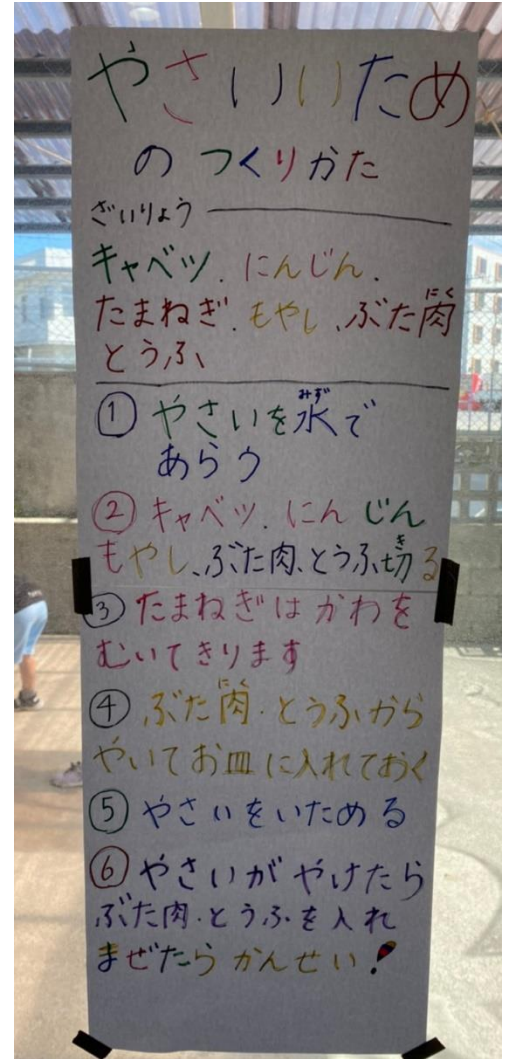 やさいいため
の つくりかた
ざいりょう
キャベツ、にんじん、
たまねぎ、もやし、ぶた肉
にく
とうふ、
① やさいを水で
みず
あらう
② キャベツ、にんじん
もやし、ぶた肉、とうふ切る
き
③ たまねぎはかわを
むいてきります
④ ぶた肉・とうふから
にく
やいてお皿に入れておく
⑤ やさいをいためる
⑥ やさいがやけたら
ぶた肉・とうふを入れ
まぜたらかんせい!